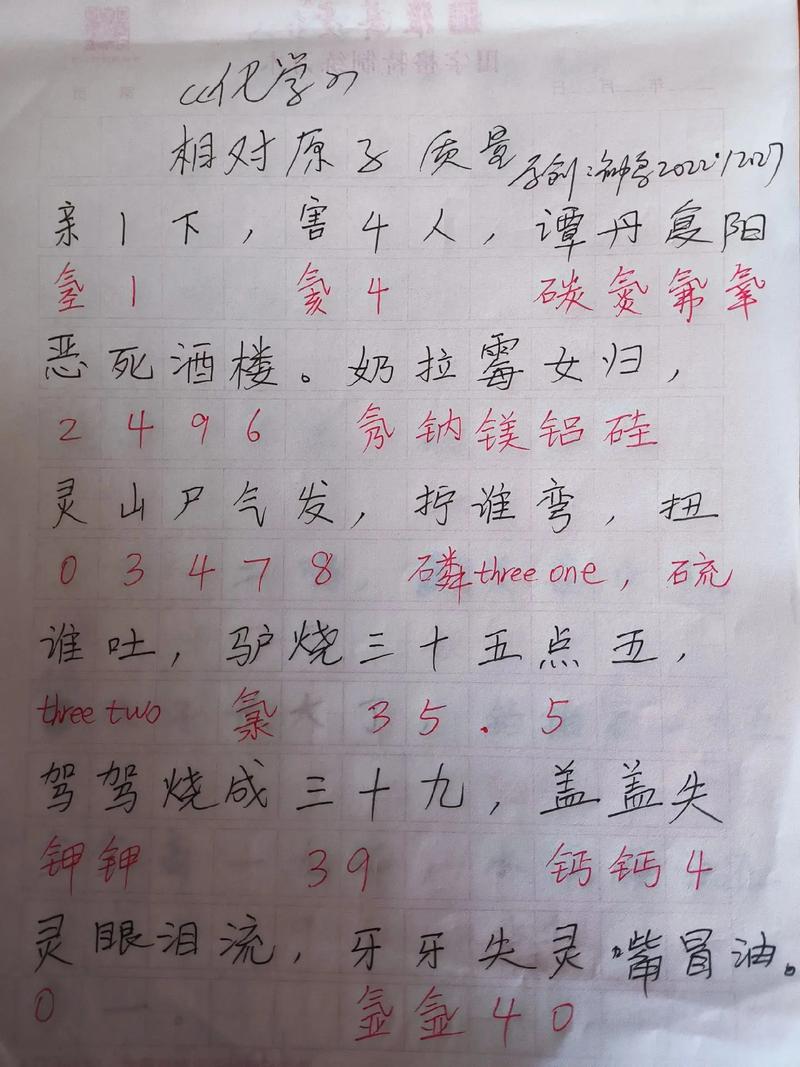 《化学》
相对原子质量 原创:钟 2022.12.27
亲1下，害4人，谭丹复阳
氢 1 氦 4 碳氮氟氧
恶死酒楼。奶拉霉女归，
2 4 9 6 氖钠镁铝硅
灵山尸气发，拧谁弯，扭
0 3 4 7 8 磷three one，硫
谁吐，驴烧三十五点五，
three two 氯 3 5 . 5
驾驾烧成三十九，盖盖失
钾钾 3 9 钙钙4
灵眼泪流，牙牙失灵嘴冒油。
0 氩氩40